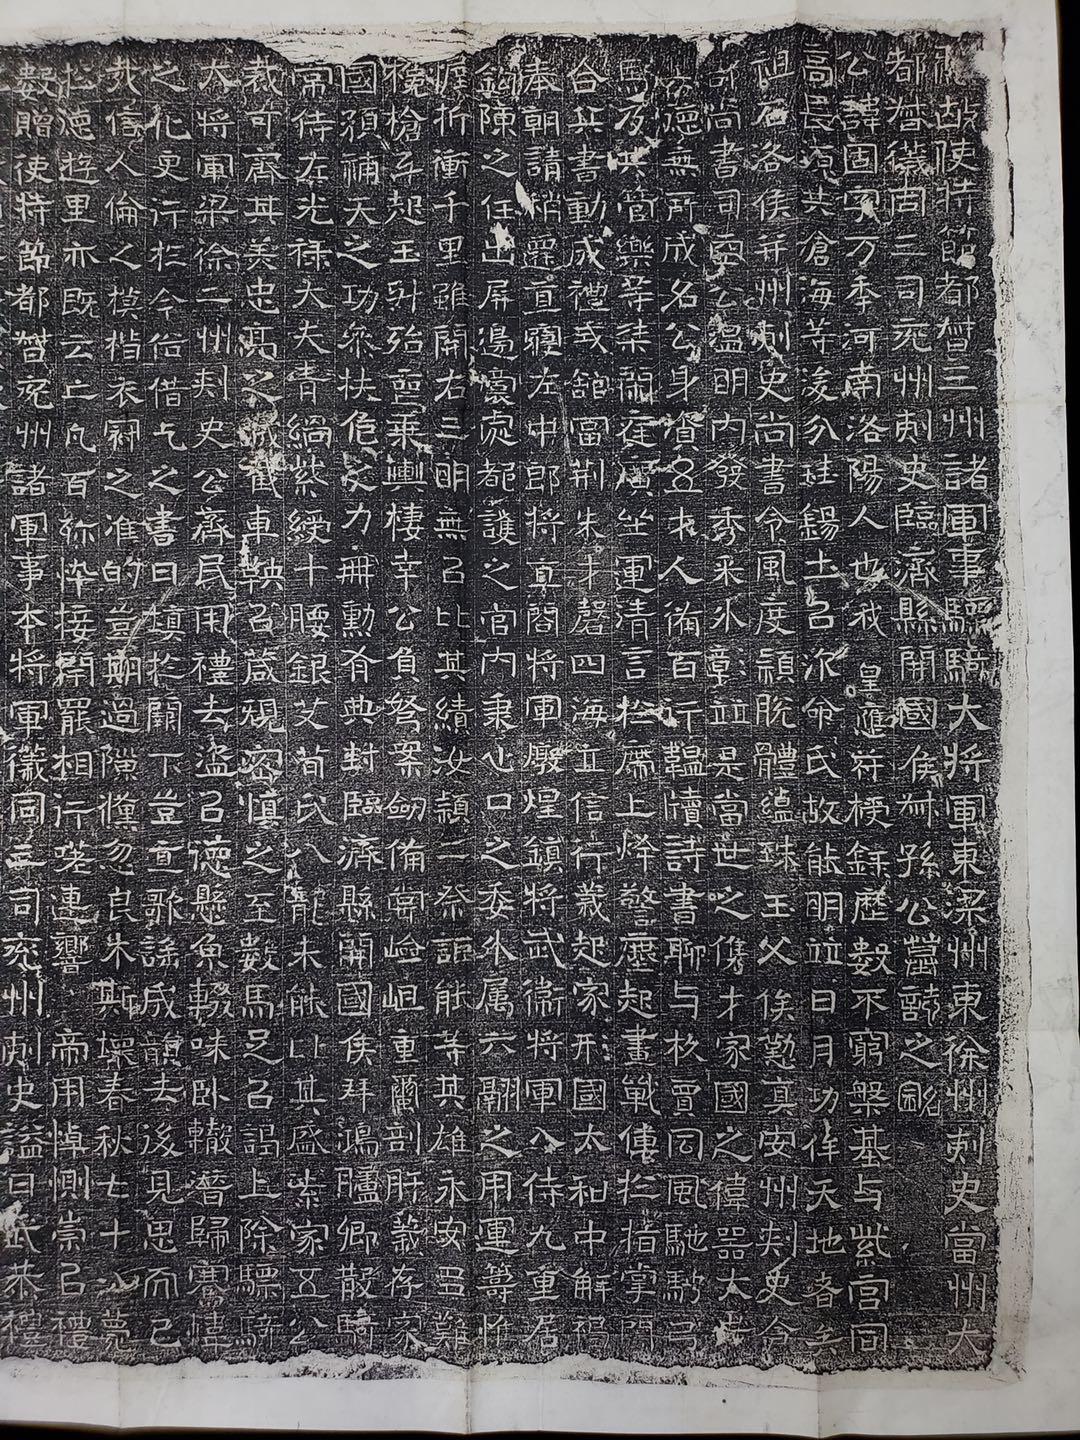 故使持節都督三州諸軍事驃騎大將軍東梁州東徐州刾史當州大
都督儀同三司兖州刾史臨濟縣開國侯叔孫公墓誌之銘
公諱固字万年河南洛陽人也我皇應符梗錄歷數不窮槃基与紫宮同
高長源共滄海等浚分珪錫土㠯㲽命氏故能明竝日月功侔天地者矣
祖石洛侯并州刾史尚書令風度穎脫體蘊珠玉父俟懃真安州刾史
尚書司空公温明内發秀采氷彰竝是當世之儁才家國之偉器大
德無所成名公身資五才人俻百行韞牘詩書聊与校賈同風馳騁弓
馬及共管樂等柒閑庭廣坐運清言扵席上烽警塵起畫戰傳扵指掌門
合兵書動成禮式舘冨荆朱才磬四海立信行義起家形國太和中解褐
奉朝請稍遷直寢左中郎將直閤將軍燉煌鎮將武衞將軍入侍九重居
鈎陳之任出屏邊裔處都護之官内秉心口之委外属六翮之用運籌帷
折衝千里雖開右三明無㠯比其績汝頴二祭詎能等其雄永安丑難
欃槍孑起玉斝殆喪乗輿棲幸公負弩案劒俻甞崄岨重蘭剖肝義存家
國須補天之功衆扶危之力冊勳有典封臨濟縣開國侯拜鴻臚卿散騎
常侍左光禄大夫青緺紫綬十腰銀艾荀氏八龍未能比其盛紫家五公
裁可齊其美忠亮之誠截車鞅㠯葴規密慎之至數馬足㠯謁上除驃騎
大將軍梁徐二州刾史公齊民用禮去盜㠯德懸魚輟味卧轍潜歸
之化更行扵今俗借乞之書日填扵闕下豈直歌謡成韻去後見思而已
㢤信人倫之模楷衣冠之准的豈期過隙儵忽良木斯壞春秋七十八薨
扵德遊里亦既云亡凢百称悴接閈罷相行嗟連響帝用悼惻崇㠯禮
數贈使持節都督兖州諸軍事本將軍儀同三司兖州刾史謚曰武恭禮